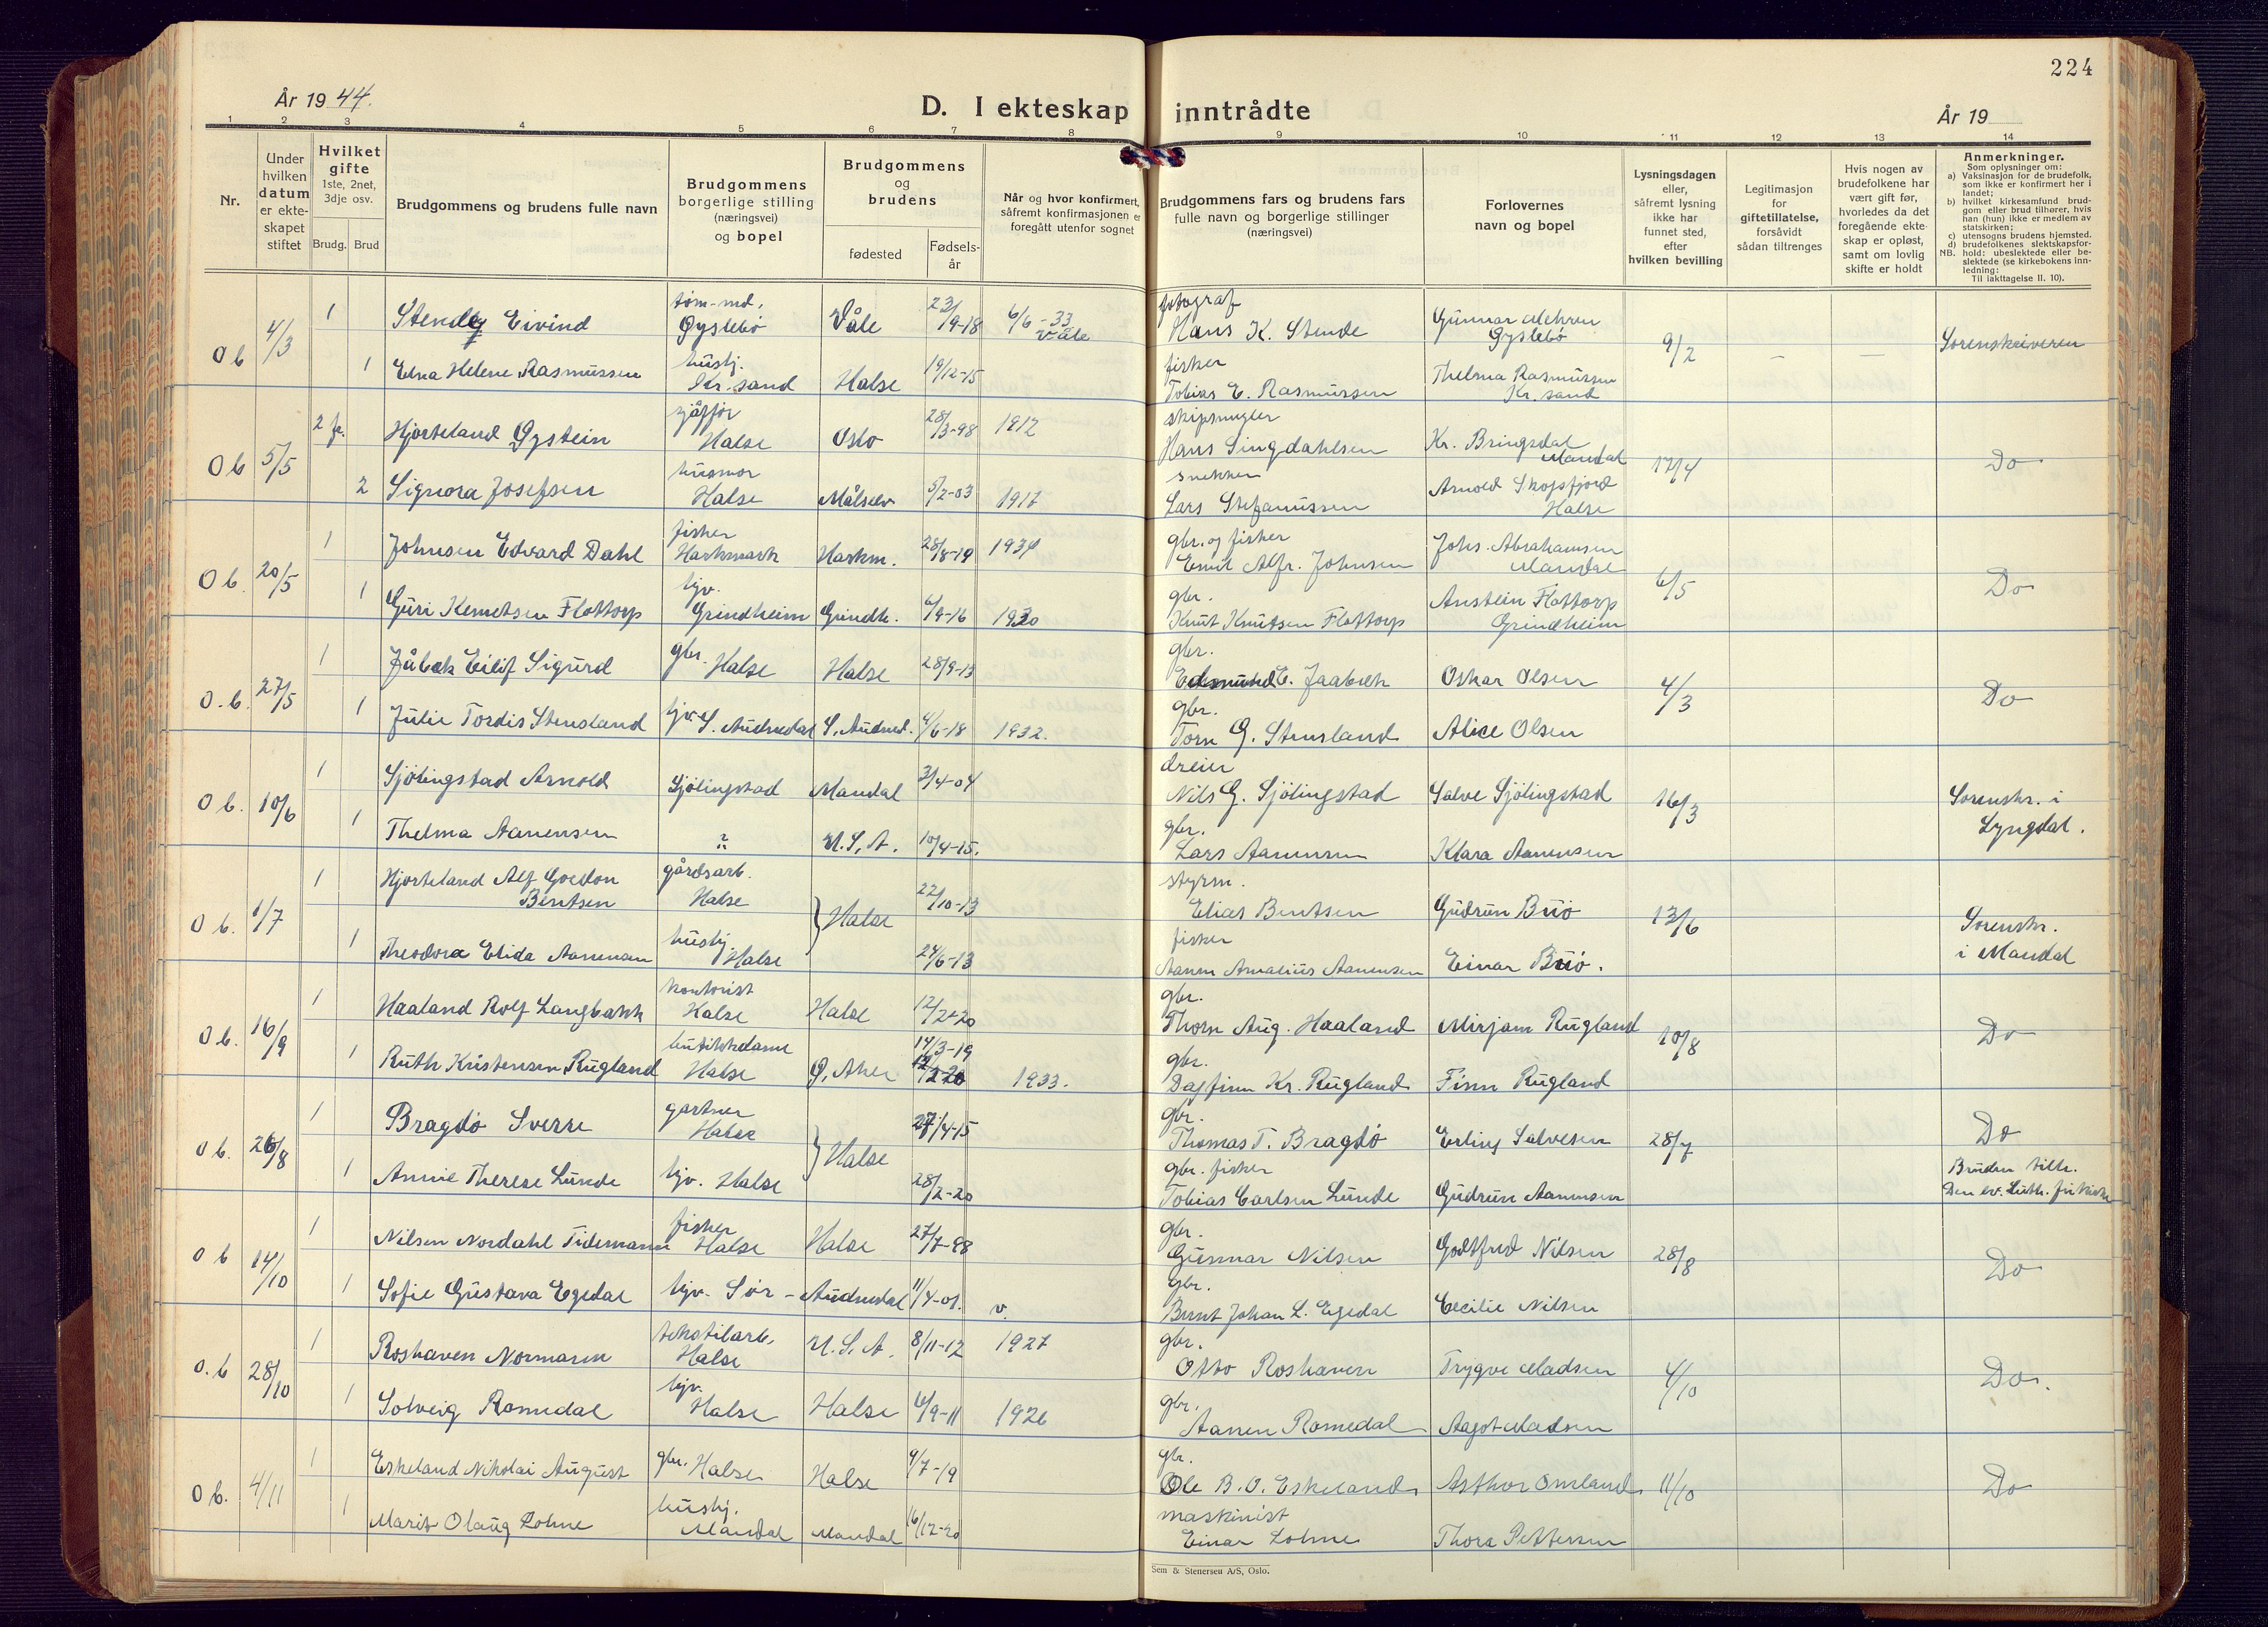 224
År 1944.
D. I ekteskap inntrådte
År 19
1 2 3 4 5 6 7 8 9 10 11 12 13 14
Nr.
Under hvilken datum er ekteskapet stiftet
Hvilket gifte
1ste, 2net, 3dje osv.
Brudg. Brud
Brudgommens og brudens fulle navn
Brudgommens borgerlige stilling (næringsvei) og bopel
Brudgommens og brudens
fødested
Fødsels-år
Når og hvor konfirmert, såfremt konfirmasjonen er foregått utenfor sognet
Brudgommens fars og brudens fars fulle navn og borgerlige stillinger (næringsvei)
Forlovernes navn og bopel
Lysningsdagen eller, såfremt lysning ikke har funnet sted, efter hvilken bevilling
Legitimasjon for giftetillatelse, forsåvidt sådan tiltrenges
Hvis nogen av brudefolkene har vært gift før, hvorledes da det foregående ekteskap er opløst, samt om lovlig skifte er holdt
Anmerkninger.
Som oplysninger om:
a) Vaksinasjon for de brudefolk, som ikke er konfirmert her i landet;
b) hvilket kirkesamfund brudgom eller brud tilhører, hvis han (hun) ikke er medlem av statskirken;
c) utensogns brudens hjemsted.
d) brudefolkenes slektskapsforhold: ubeslektede eller beslektede (se kirkebokens innledning:
NB. Til iakttagelse II. 10).
Ob 4/3 1 Eivind tøm-md. Øyslebø Våle 23/9-18 6/6-33 Våle fotograf Hans K. Stende Gunnar Øyslebø 9/2 — — Sorenskriveren
1 Edna Helene Rasmussen hushj. Kr.sand Halse 19/12-15 fisker Tobias E. Rasmussen Thelma Rasmussen Kr.sand
Ob 5/5 2 Hjorteland Øystein sjåfør Halse Oslo 28/3-98 1912 Hans Singdahlsen Kr. Bringsdal Mandal 17/4 Do
2 Signora Josefsen husmor Halse Målselv 5/2-03 1917 snekker Lars Stefanussen Arnold Skogsfjord Halse
Ob. 20/5 1 Johnsen Edvard Dahl fisker Harkmark Harkm. 28/8-19 1934 gbr. og fisker Emil Alfr. Johnsen Johs. Abrahamsen Mandal 6/5 Do
1 Guri Knutsen Flottorp hjv. Grindheim Grindh. 6/9-16 1930 gbr. Knut Knutsen Flottorp Anstein Flottorp Grindheim
O.b. 27/5 1 Jåbæk Eilif Sigurd gbr. Halse Halse 28/9-13 gbr. Edmund E. Jaabæk Oskar Olsen 4/3 Do
1 Julie Tordis Stensland hjv. S. Audnedal S. Audned. 4/6-18 1932. gbr. Torn G. Stensland Alice Olsen
Ob. 10/6 1 Sjölingstad Arnold Sjölingstad Mandal 3/4-04 dreier Nils G. Sjölingstad Salve Sjölingstad 16/3 Sorenskr. i Lyngdal.
1 Thelma Aanensen U.S.A. 10/4-15. gbr. Lars Aanensen Klara Aanensen
Ob. 1/7 1 Hjorteland Alf Gordon Bentsen gårdsarb. Halse } Halse 22/10-13 styrm. Elias Bentsen Gudrun Buö 13/6 Sorenskr. i Mandal
1 Theodora Elida Aanensen hushj. Halse 24/6-13 fisker Aanen Amalius Aanensen Einar Buö.
Ob. 16/9 1 Haaland Rolf Langbakk kontorist Halse Halse 12/2-20 gbr. Thorn Aug. Haaland Mirjam Rugland 10/8 Do
1 Ruth Kristensen Rugland butikkdame Halse Ø. Aker 14/3-19 1933. gbr. Dagfinn Kr. Rugland Finn Rugland
Ob. 26/8 1 Bragdø Sverre gartner Halse } Halse 27/4-15 gbr. Thomas T. Bragdø Erling Salvesen 28/7 Do
1 Annie Therese Lunde hjv. Halse 28/2-20 gbr. fisker Tobias Carlsen Lunde Gudrun Aanensen Bruden tilh. Den ev. Luth. frikirke
Ob 14/10 1 Nilsen Nordahl Tidemann fisker Halse Halse 27/7-98 gbr. Gunnar Nilsen Godtfred Nilsen 28/8 Do
1 Sofie Gustava Egedal hjv. Sør-Audnedal 11/4-01. v. gbr. Bernt Johan L. Egedal Cecilie Nilsen
O.b 28/10 1 Roshaven Normann tekstilarb. Halse U.S.A. 8/11-12 1927 gbr. Otto Roshaven Trygve Madsen 4/10 Do.
1 Solveig Romedal hjv. Halse Halse 6/9-11 1926 gbr. Aanen Romedal Aagot Madsen
Ob. 4/11 1 Eskeland Nikolai August gbr. Halse Halse 9/7-19 gbr. Ole B. O. Eskeland Asthor Omland 11/10 Do
1 Marit Olaug Lohne hushj. Mandal Mandal 16/12-20 maskinist Einar Lohne Thora Pettersen
Sem & Stenersen A/S, Oslo.